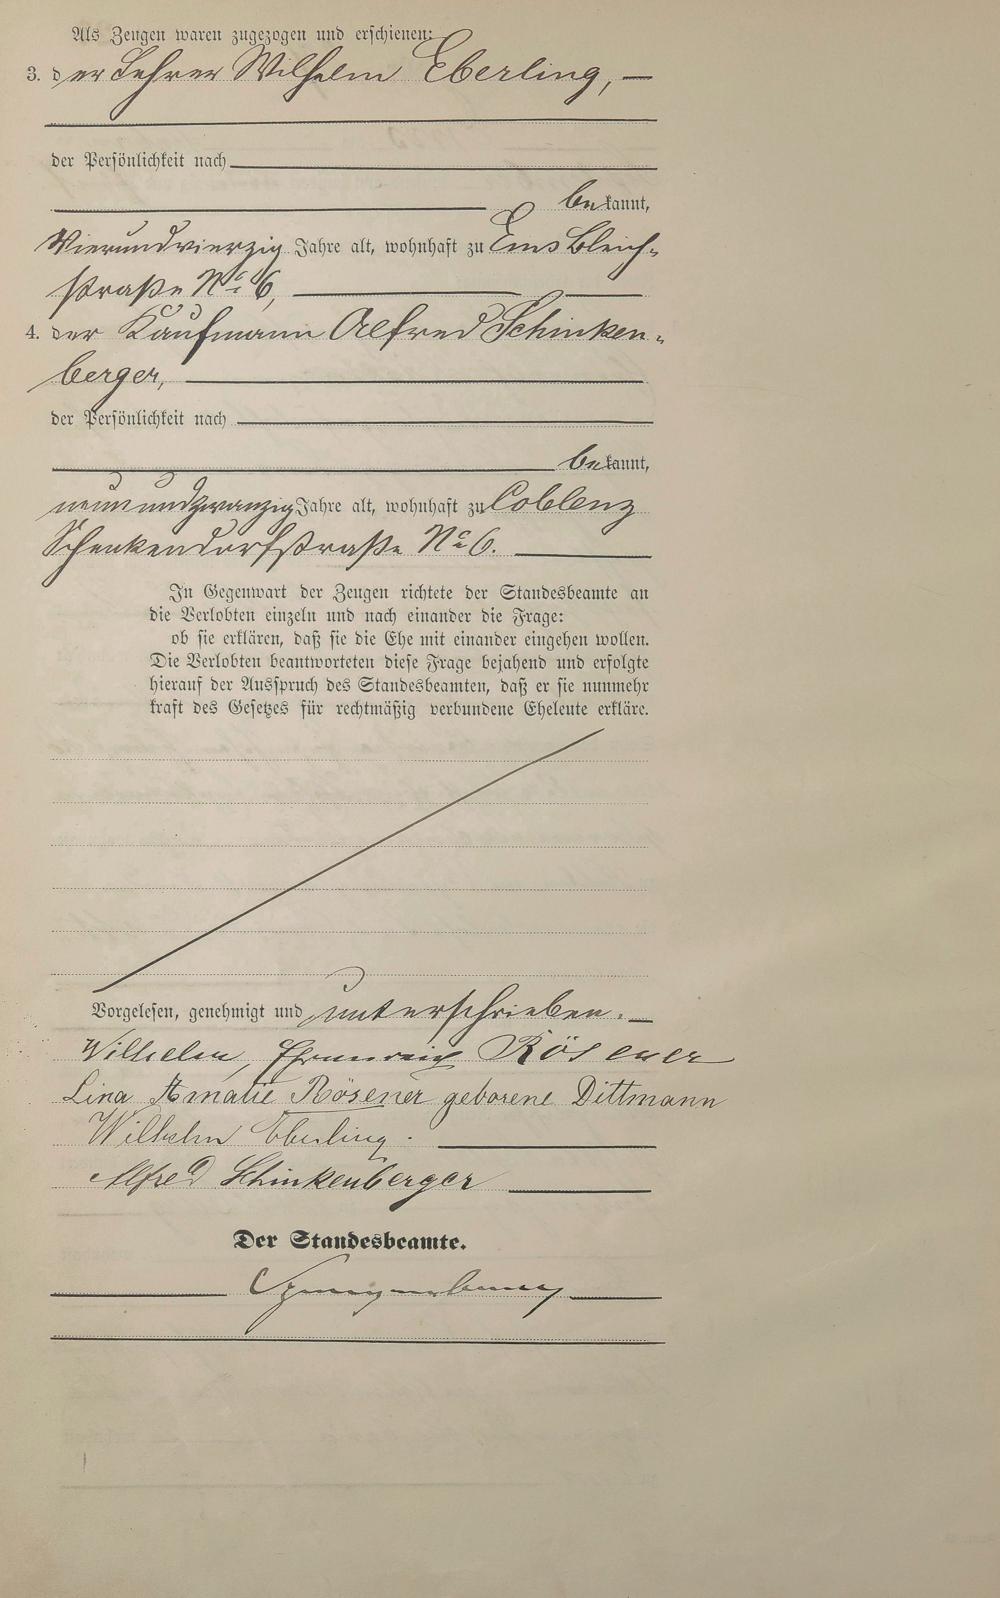 Als Zeugen waren zugezogen und erschienen:
3. der Lehrer Wilhelm Eberling, —
der Persönlichkeit nach
bekannt,
Vierundvierzig Jahre alt, wohnhaft zu Ems Bleich-
straße No 6,
4. der Kaufmann Alfred Schinken-
berger,
der Persönlichkeit nach
bekannt,
neunundzwanzig Jahre alt, wohnhaft zu Coblenz
Schenkendorfstraße No 6.
In Gegenwart der Zeugen richtete der Standesbeamte an
die Verlobten einzeln und nach einander die Frage:
ob sie erklären, daß sie die Ehe mit einander eingehen wollen.
Die Verlobten beantworteten diese Frage bejahend und erfolgte
hierauf der Ausspruch des Standesbeamten, daß er sie nunmehr
kraft des Gesetzes für rechtmäßig verbundene Eheleute erkläre.
Vorgelesen, genehmigt und unterschrieben. —
Wilhelm, Ehrenreich Rösener
Lina Amalie Rösener geborene Dittmann
Wilhelm Eberling.
Alfred Schinkenberger
Der Standesbeamte.